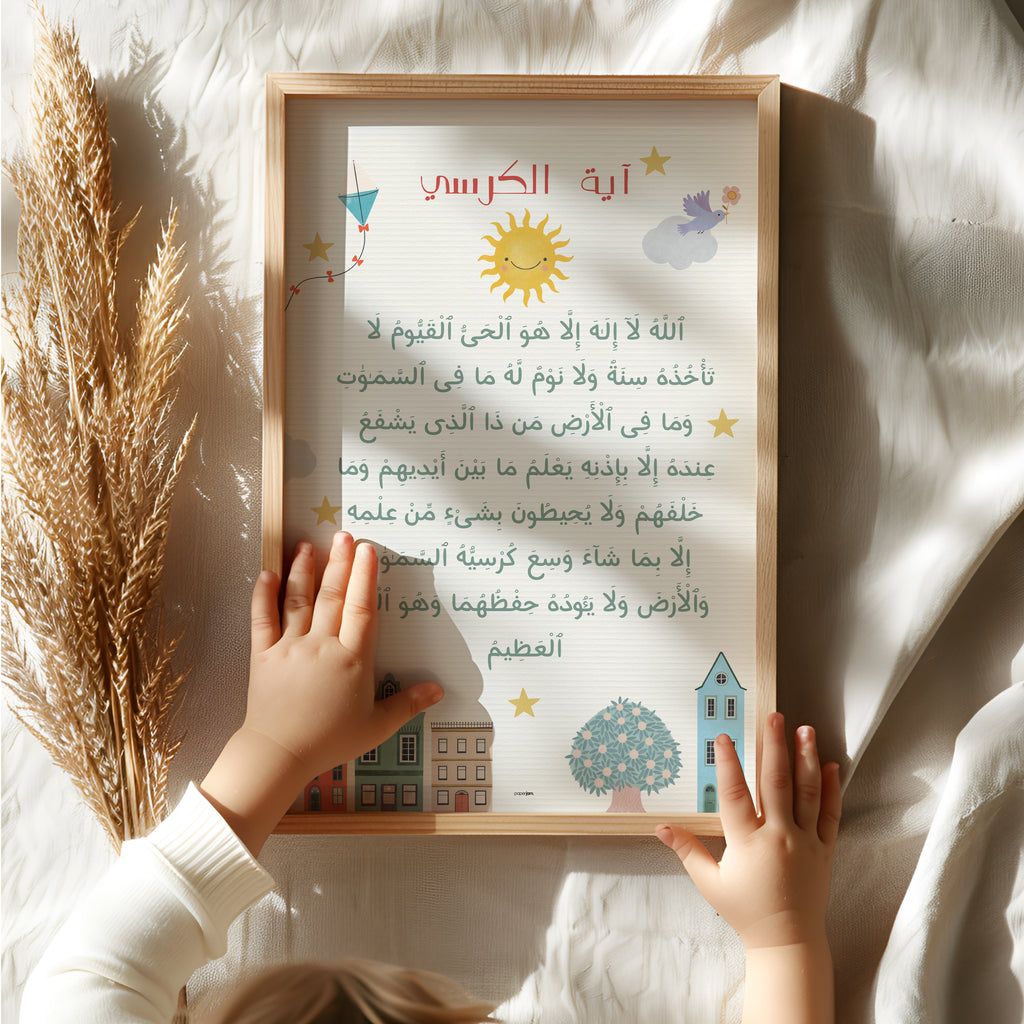 آية الكرسي
ٱللَّهُ لَآ إِلَٰهَ إِلَّا هُوَ ٱلْحَىُّ ٱلْقَيُّومُ لَا
تَأْخُذُهُ سِنَةٌ وَلَا نَوْمٌ لَّهُ مَا فِى ٱلسَّمَٰوَٰتِ
وَمَا فِى ٱلْأَرْضِ مَن ذَا ٱلَّذِى يَشْفَعُ
عِندَهُ إِلَّا بِإِذْنِهِ يَعْلَمُ مَا بَيْنَ أَيْدِيهِمْ وَمَا
خَلْفَهُمْ وَلَا يُحِيطُونَ بِشَىْءٍ مِّنْ عِلْمِهِ
إِلَّا بِمَا شَآءَ وَسِعَ كُرْسِيُّهُ
وَٱلْأَرْضَ وَلَا يَـُٔودُهُ حِفْظُهُمَا وَهُوَ
ٱلْعَظِيمُ
paperjam.